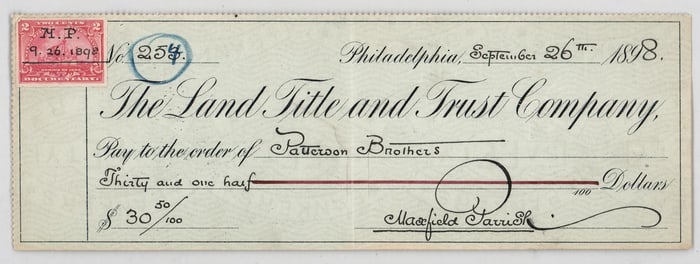 TWO CENTS
2 2
M.P.
9.26.1898
DOCUMENTARY
No. 254. Philadelphia, September 26TH. 1898.
The Land Title and Trust Company,
Pay to the order of Patterson Brothers
Thirty and one half 100 Dollars
$ 30 50/100 Maxfield Parrish